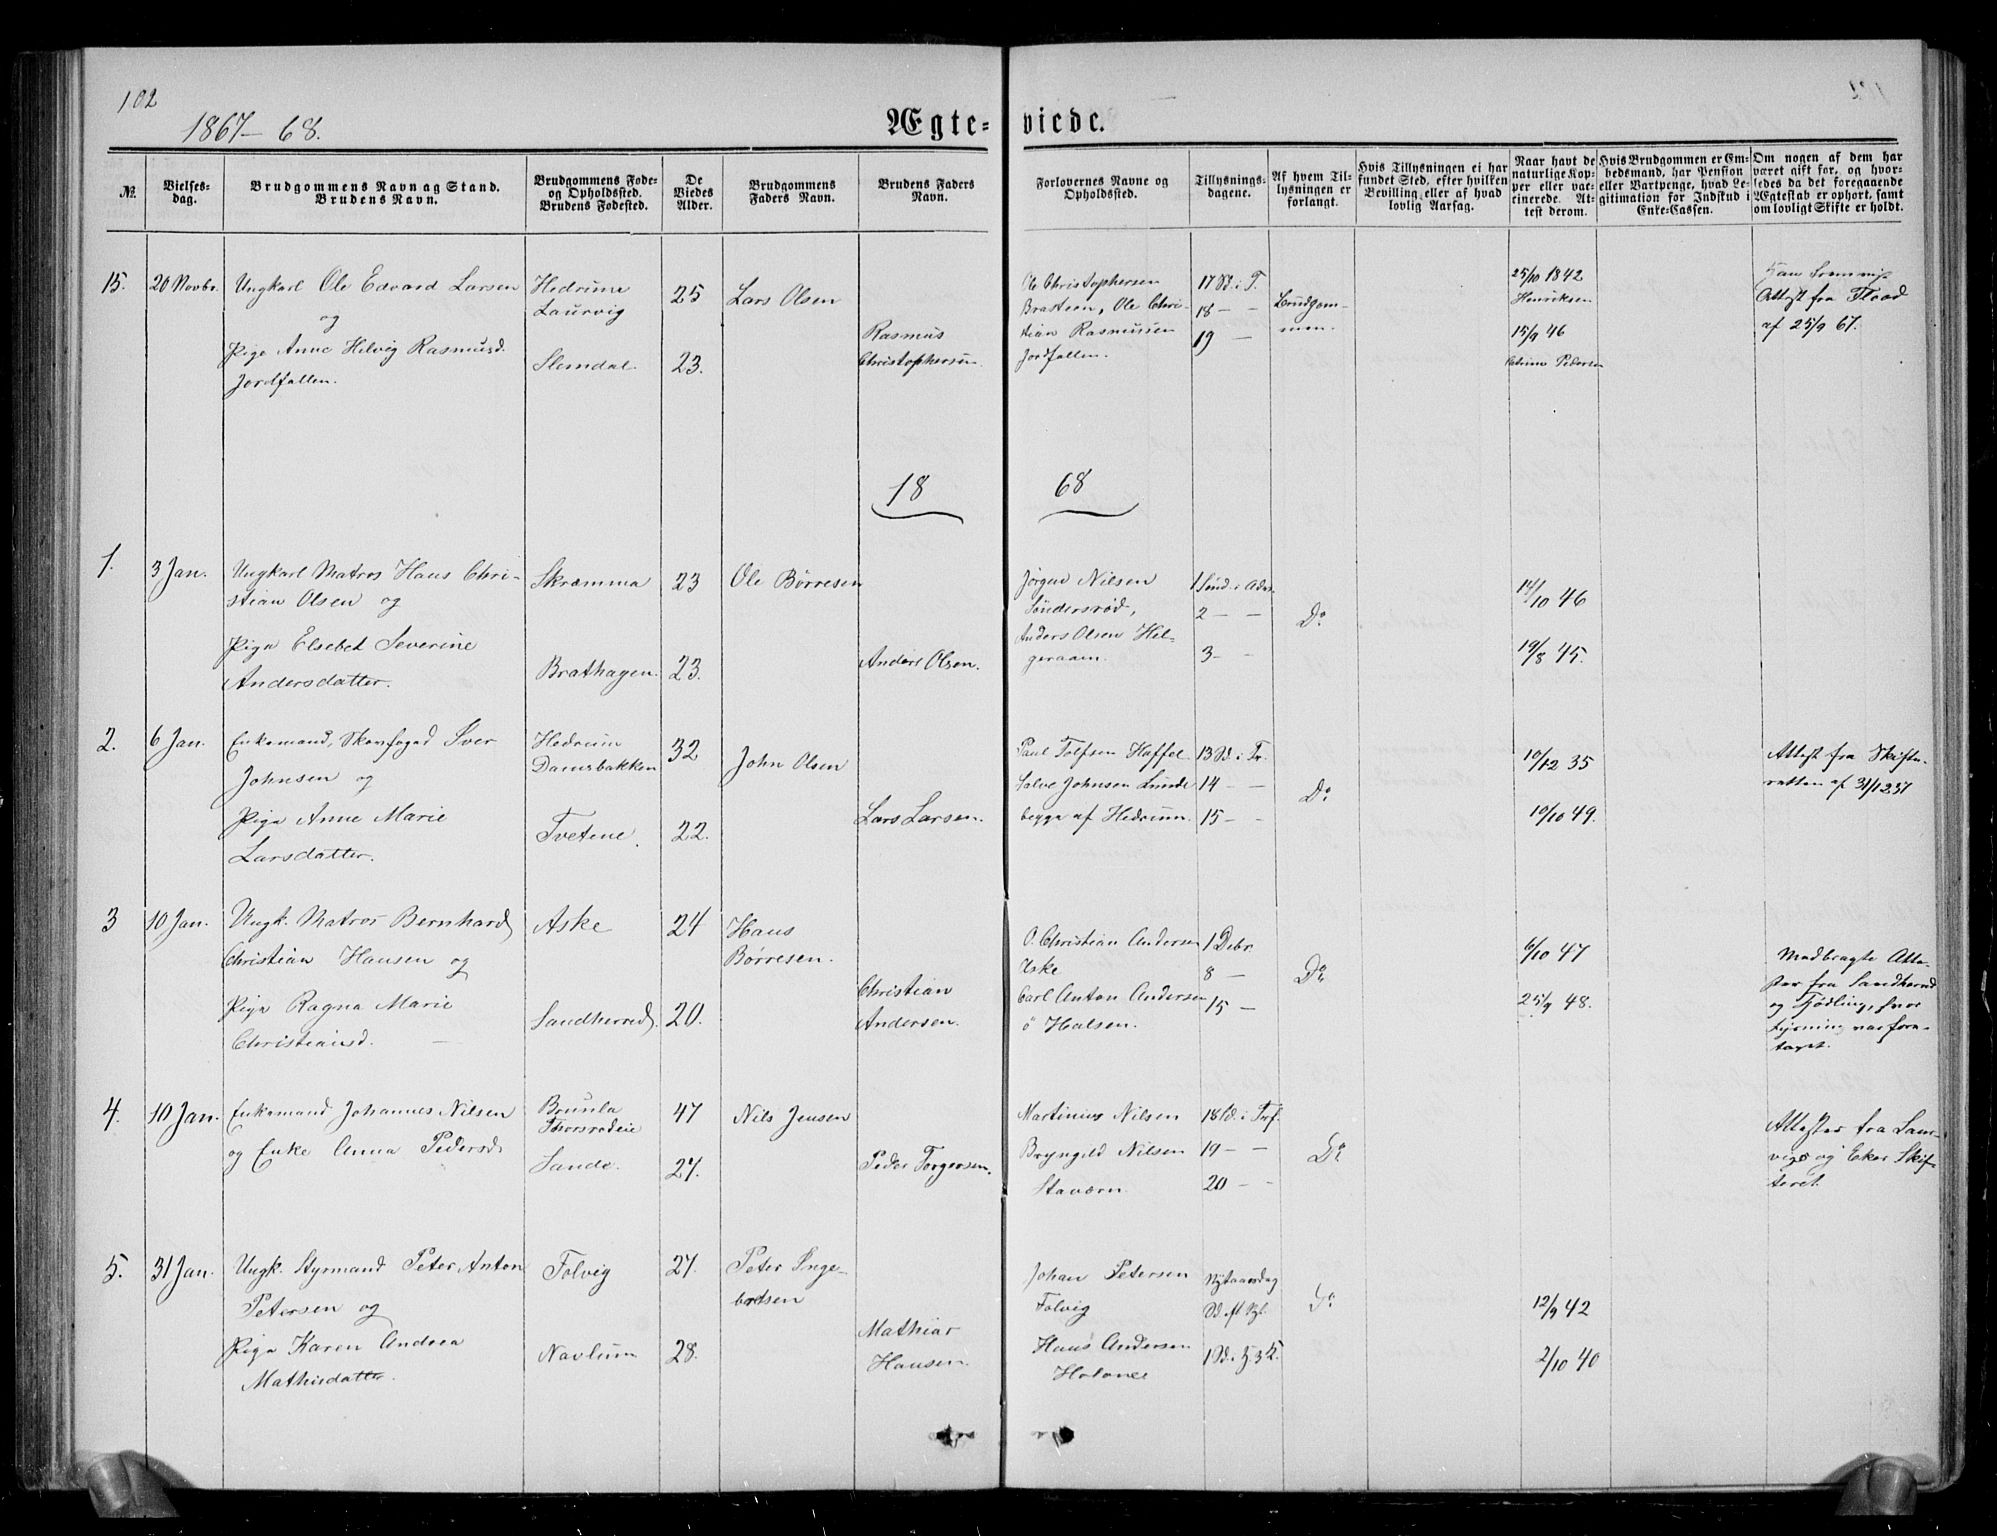 102
1867-68.
Ægte-
viede.
№.
Vielses-
dag.
Brudgommens Navn og Stand.
Brudens Navn.
Brudgommens Føde-
og Opholdssted.
Brudens Fødested.
De
Viedes
Alder.
Brudgommens
Faders Navn.
Brudens Faders
Navn.
Forlovernes Navne og
Opholdssted.
Tillysnings-
dagene.
Af hvem Til-
lysningen er
forlangt.
Hvis Tillysningen ei har
fundet Sted, efter hvilken
Bevilling eller af hvad
lovlig Aarsag.
Naar havt de
naturlige Kop-
per eller vac-
cinerede. At-
test derom.
Hvis Brudgommen er Em-
bedsmand, har Pension
eller Vartpenge, hvad Le-
gitimation for Indskud i
Enke-Cassen.
Om nogen af dem har
været gift før, og hvor-
ledes da det foregaaende
Ægteskab er ophørt, samt
om lovligt Skifte er holdt.
15.
20 Novbr.
Ungkarl Ole Edvard Larsen
og
Pige Anne Helvig Rasmusd.
Jordfallen.
Hedrum
Laurvig
Slemdal.
25
23.
Lars Olsen
Rasmus
Christophersen.
Christophersen
Bratteen, Ole Chri-
stian Rasmussen
Jordfallen.
17 Sd. i T.
18 - -
19 -
Brudgom-
men.
25/10 1842
Henriksen
15/9 46
Pedersen
Attest fra Flood
af 25/9 67.
18
68
1.
3 Jan.
Ungkarl Matros Hans Chri-
stian Olsen og
Pige Elsebet Severine
Andersdatter.
Skræmma
Brathagen.
23
23.
Ole Børresen
Anders Olsen.
Jørgen Nilsen
Søndersrød,
Anders Olsen Hel-
geraaen.
1 Sønd. i Adv.
2 - -
3 - -
Do.
14/10 46
19/8 45.
2.
6 Jan.
Enkemand, Skovfoged Iver
Johnsen og
Pige Anne Marie
Larsdatter.
Hedrum
Damsbakken
Tvetene.
32
22.
John Olsen
Lars Larsen.
Paul Tolfsen Haffel
Salve Johnsen Lunde
begge af Hedrum.
13 Sd. i Tr.
14 - -
15 - -
Do.
10/12 35
10/10 49.
Attest fra Skifte-
retten af 31/12 37
3
10 Jan.
Ungk. Matros Bernhard
Christian Hansen og
Pige Ragna Marie
Christiansd.
Aske
Sandherred.
24
20.
Hans
Børresen.
Christian
Andersen.
O. Christian Andersen
Aske
Carl Anton Andersen
ø Halsen.
1 Debr.
8 -
15 -
Do.
6/10 47
25/9 48.
Medbragte Atte-
ster fra Sandherred
og Tjødling, hvor
lysning var fore-
taget.
4.
10 Jan.
Enkemand Johannes Nilsen
og Enke Anna Pedersd.
Brunla
Thorsrødeie
Sande.
47
27.
Nils Jensen
Peder Torgersen.
Martinius Nilsen
Bryngeld Nilsen
Stavern.
18 Sd. i Tref.
19 - -
20 - -
Do.
Attester fra Laur-
vigs og Eker Skif-
teret.
5.
31 Jan.
Ungk. Styrmand Peter Anton
Petersen og
Pige Karen Andrea
Mathisdatter.
Folvig
Navlum
27.
28.
Peter Inge-
bretsen
Mathias
Hansen.
Johan Petersen
Folvig
Hans Andersen
Holanes
Nytaarsdag
Sd. ef. Nyt.
1 Sd. e. H. 3 K.
Do.
12/9 42
2/10 40